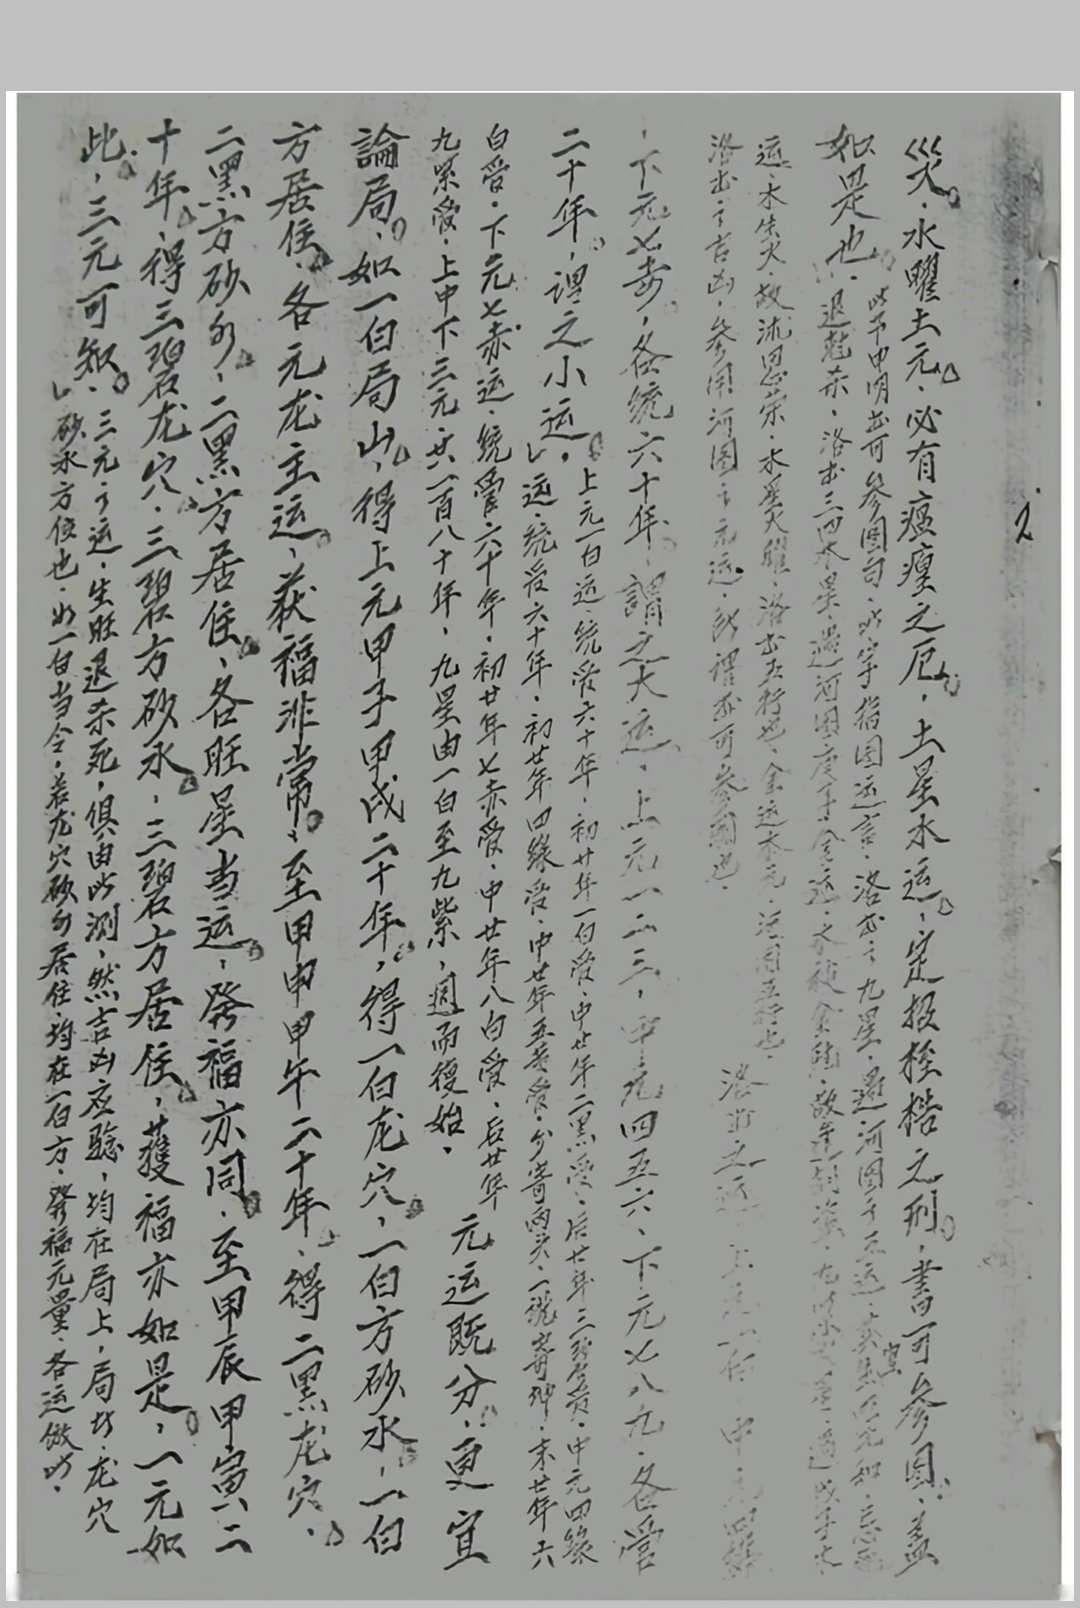 災、水曜土元、必有瘟𤸇之厄、土星水運、定報桎梏之刑、書可參圖、蓋
如是也、此節申明書可參圖句、此字指圖運言、洛書之九星、遇河圖子五運
退尅杀、洛書三四木星、遇河圖庚子金運
運、木生火、故沐恩荣、水星火曜、洛書五行也、金運木元、運圖五行也、洛書之運、上元一白、中元四綠
洛書之吉凶、參用河圖之元運、所謂書可參圖也、
、下元七赤、各統六十年、謂之大運、上元一二三、中元四五六、下元七八九、各管
二十年、谓之小运、上元一白运、統管六十年、初廿年一白受、中廿年二黑受、后廿年三碧受、中元四綠
运、統管六十年、初廿年四綠受、中廿年五黄受、分寄兩头、一説寄坤、末廿年六
白受、下元七赤运、統管六十年、初廿年七赤受、中廿年八白受、后廿年
九紫受、上中下三元、共一百八十年、九星由一白至九紫、週而復始、元运既分、更宜
論局、如一白局山、得上元甲子甲戌二十年、得一白龙穴、一白方砂水、一白
方居住、各元龙主运、获福非常、至甲申甲午二十年、得二黑龙穴、
二黑方砂水、二黑方居住、各旺星当运、發福亦同、至甲辰甲寅二
十年、得三碧龙穴、三碧方砂水、三碧方居住、獲福亦如是、一元如
此、三元可知、三元之运、生旺退杀死、俱由此測、然吉凶应驗、均在局上、局者、龙穴
砂水方位也、如一白当令、若龙穴砂水居住、均在一白方、發福元量、各运倣此、
2